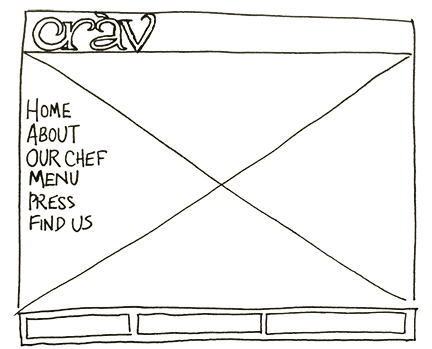 cràv
HOME
ABOUT
OUR CHEF
MENU
PRESS
FIND US